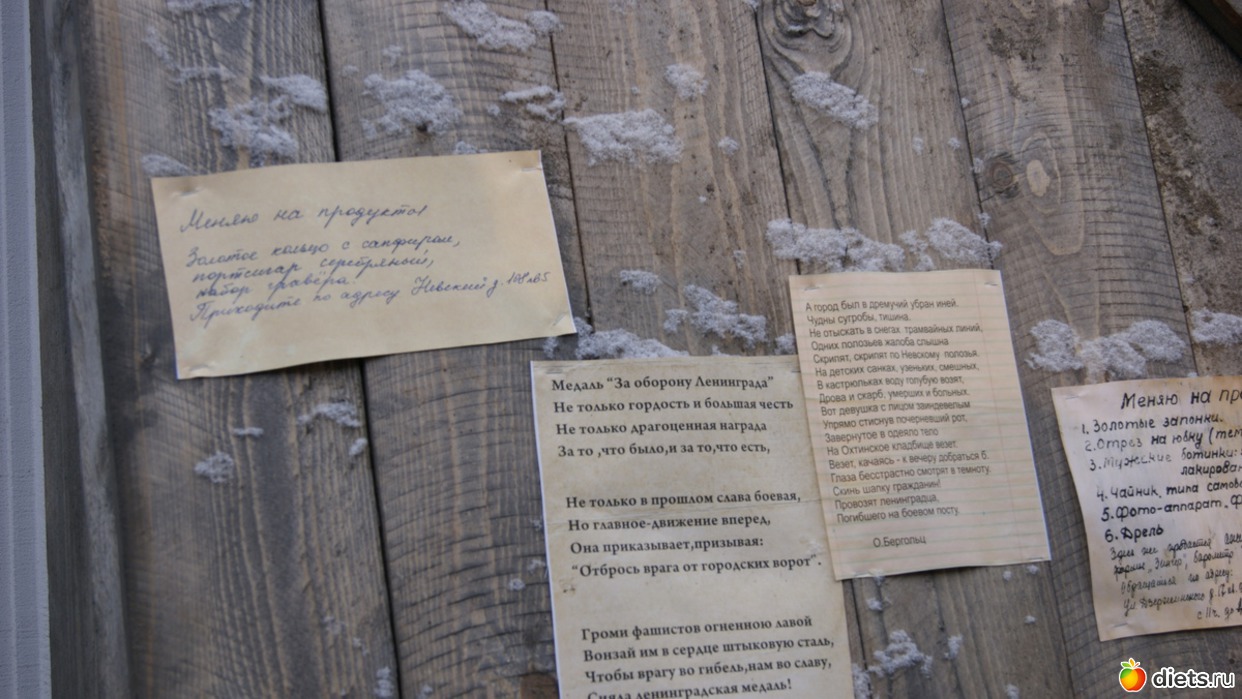 Меняю на продукты
Золотое кольцо с сапфиром,
портсигар серебряный,
набор гравёра!
Приходите по адресу Невский д.
Медаль “За оборону Ленинграда”
Не только гордость и большая честь
Не только драгоценная награда
За то ,что было,и за то,что есть,
Не только в прошлом слава боевая,
Но главное-движение вперед,
Она приказывает,призывая:
“Отбрось врага от городских ворот”.
Громи фашистов огненною лавой
Вонзай им в сердце штыковую сталь,
Чтобы врагу во гибель,нам во славу,
Сияла ленинградская медаль!
А город был в дремучий убран иней.
Чудны сугробы, тишина.
Не отыскать в снегах трамвайных линий,
Одних полозьев жалоба слышна
Скрипят, скрипят по Невскому полозья.
На детских санках, узеньких, смешных,
В кастрюльках воду голубую возят,
Дрова и скарб, умерших и больных.
Вот девушка с лицом заиндевелым
Упрямо стиснув почерневший рот,
Завернутое в одеяло тело
На Охтинское кладбище везет.
Везет, качаясь - к вечеру добраться б.
Глаза бесстрастно смотрят в темноту.
Скинь шапку гражданин!
Провозят ленинградца,
Погибшего на боевом посту.
О.Бергольц
Меняю на
1. Золотые запонки.
2. Отрез на юбку
3. Мужские ботинки:
4. Чайник типа
5. Фото-аппарат.
6. Дрель
Здесь же продается
барометр
Обращаться по адресу:
ул. Дзержинского д.
diets.ru